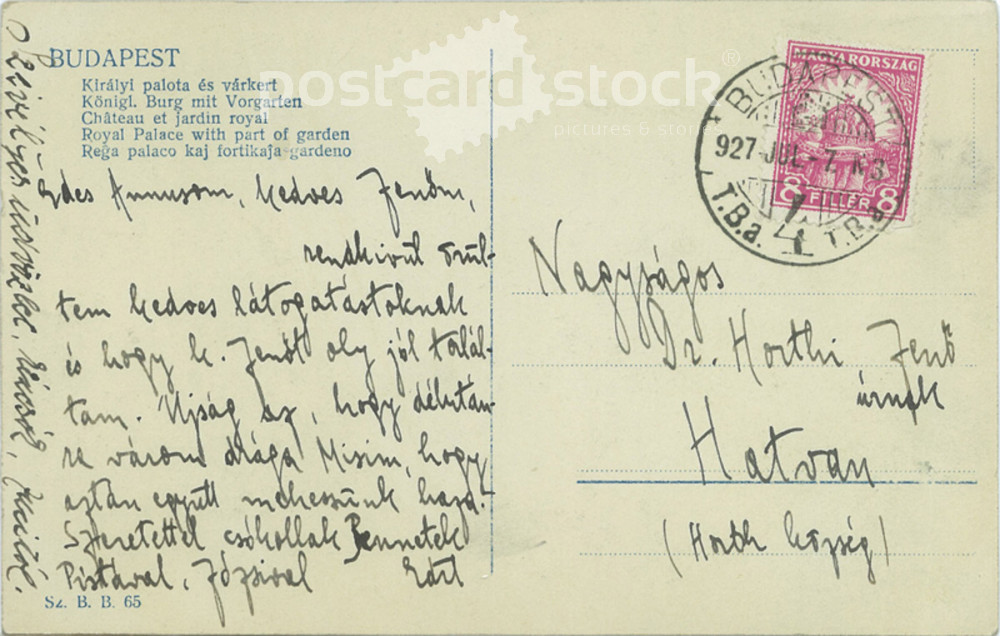 BUDAPEST
Királyi palota és várkert
Königl. Burg mit Vorgarten
Château et jardin royal
Royal Palace with part of garden
Reĝa palaco kaj fortikaĵa gardeno
Édes Annusom, kedves Jenőm,
rendkivül örül-
tem kedves látogatástoknak
és hogy k. Jenőt oly jól talál-
tam. Ujság az, hogy délután-
ra várom drága Misim, hogy
aztán együtt mehessünk haza.
Szeretettel csókollak Bennetek
Pistával, Józsival
Sz. B. B. 65
postcard stock
pictures & stories
MAGYARORSZÁG
8 FILLÉR 8
BUDAPEST
927 JUL - 7.
4
T.B.a. T.B.a
Nagyságos
Dr. Horthi Jenő
úrnak
Hatvan
(Horth község)